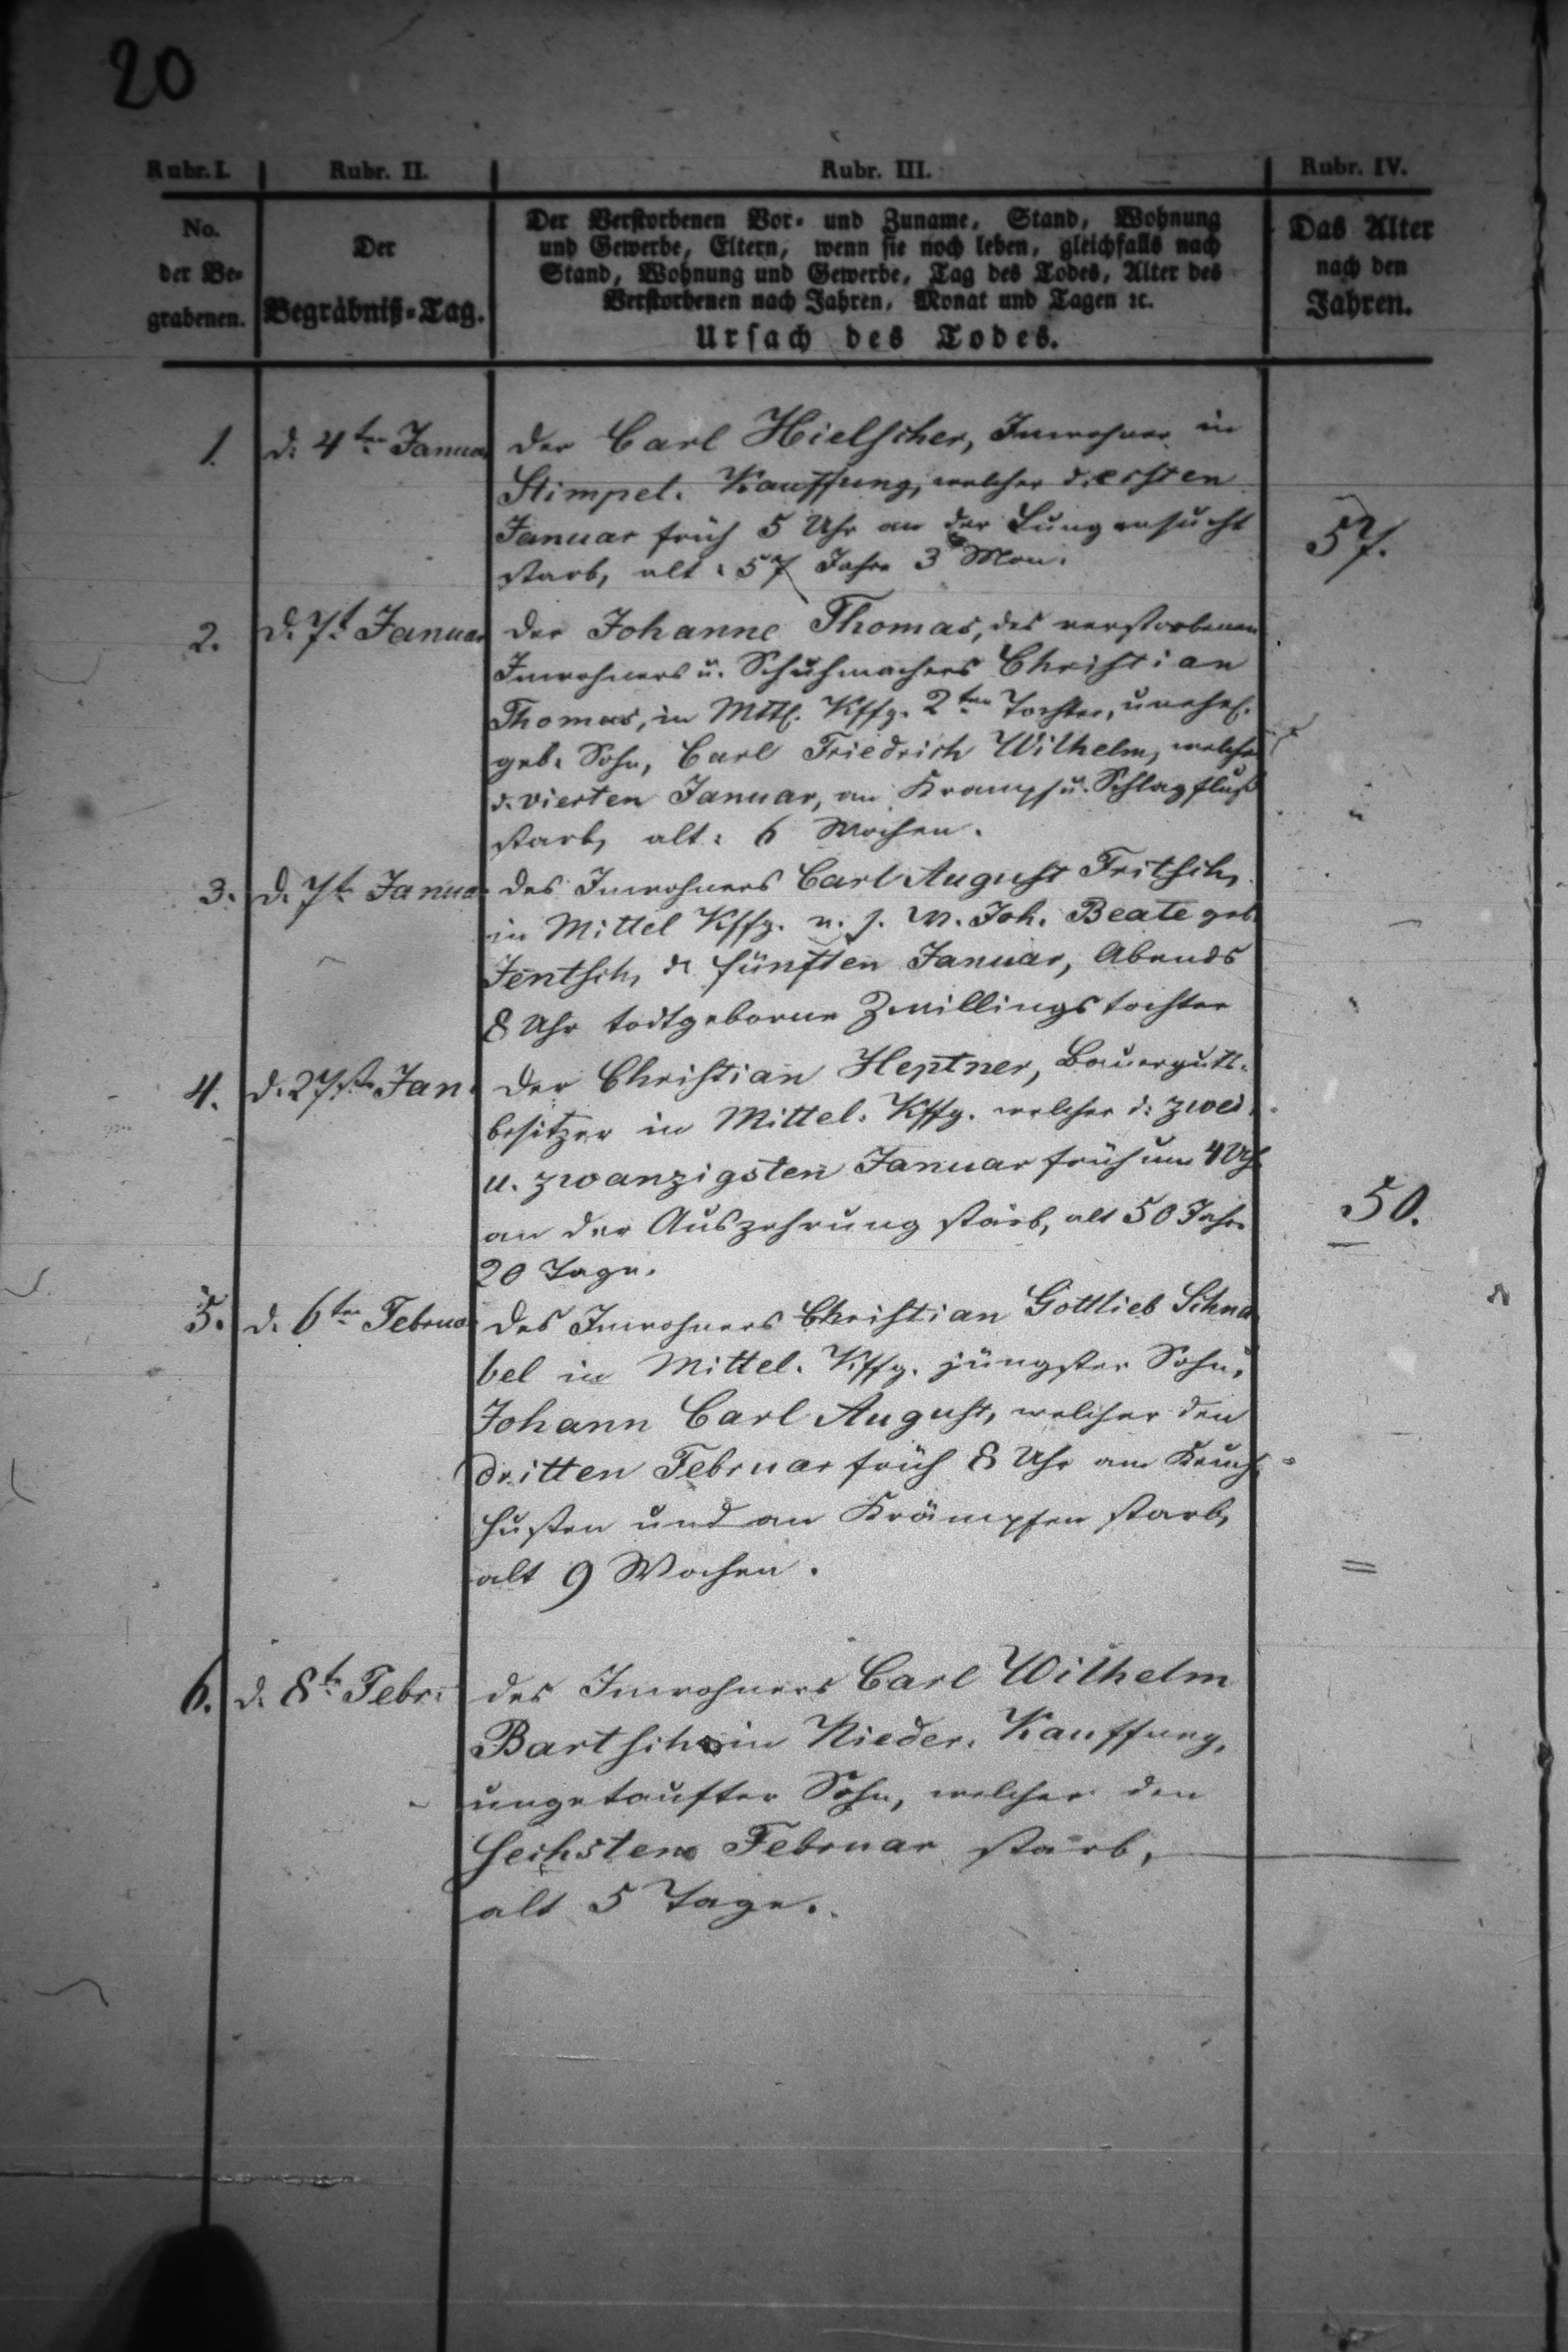 20
Rubr. I. Rubr. II. Rubr. III. Rubr. IV.
No.
der Be-
grabenen.
Der
Begräbniß-Tag.
Der Verstorbenen Vor- und Zuname, Stand, Wohnung
und Gewerbe, Eltern, wenn sie noch leben, gleichfalls nach
Stand, Wohnung und Gewerbe, Tag des Todes, Alter des
Verstorbenen nach Jahren, Monat und Tagen ꝛc.
Ursach des Todes.
Das Alter
nach den
Jahren.
1. d. 4ten Januar der Carl Hielscher, Inwohner in
Stimpel. Kauffung, welcher d. ersten
Januar früh 5 Uhr an der Lungensucht
starb, alt: 57 Jahr 3 Mon. 57.
2. d. 7t. Januar der Johanne Thomas, des verstorbenen
Inwohners u. Schuhmachers Christian
Thomas, in Mttl. Kffg. 2ten Tochter, unehel.
geb. Sohn, Carl Friedrich Wilhelm, welcher
d. vierten Januar, an Krampf u. Schlagfluß
starb, alt: 6 Wochen.
3. d. 7t. Januar des Inwohners Carl August Fritsch,
in Mittel Kffg. u. s. W. Joh. Beate geb.
Jentsch, d. fünften Januar, Abends
8 Uhr todtgeborne Zwillingstochter
4. d. 27st. Jan. Der Christian Heptner, Bauerguts-
besitzer in Mittel. Kffg. welcher d. zwei
u. zwanzigsten Januar früh um 4 Uhr
an der Auszehrung starb, alt 50 Jahr 50.
20 Tage.
5. d. 6ten Februar des Inwohners Christian Gottlieb Schna
bel in Mittel. Kffg. jüngster Sohn,
Johann Carl August, welcher den
dritten Februar früh 8 Uhr am Keuch-
husten und an Krämpfen starb,
alt 9 Wochen.
6. d. 8t. Febr: des Inwohners Carl Wilhelm
Bartsch in Nieder. Kauffung,
ungetaufter Sohn, welcher den
sechsten Februar starb,
alt 5 Tage.